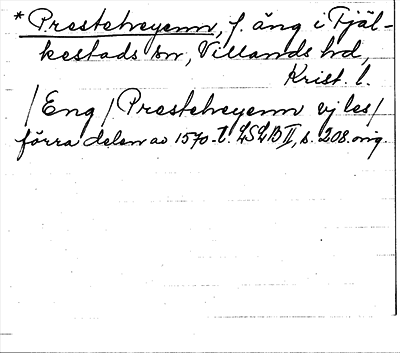 * Prestehveyenn, f. äng i Fjäl-
kestads sn, Villands hd,
Krist. l.
/ Eng / Prestehveyenn vj les /
förra delen av 1570-t. LSLB II, s. 208. orig.